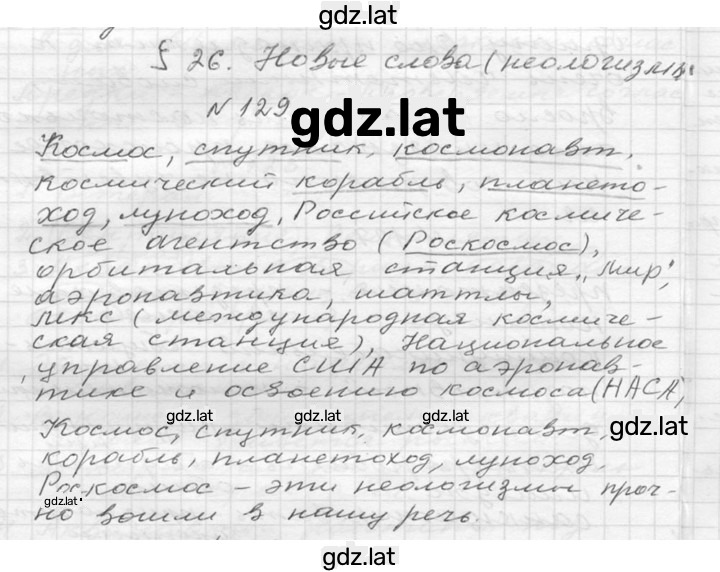 gdz.lat
§ 26. Новые слова (неологизмы)
N 129
gdz.lat
Космос, спутник, космонавт,
космический корабль, плането-
ход, луноход, Российское космиче-
ское агентство (Роскосмос),
орбитальная станция „Мир",
аэронавтика, шаттлы,
МКС (международная космиче-
ская станция), Национальное
управление США по аэронав-
тике и освоению космоса (НАСА)
gdz.lat gdz.lat gdz.lat
Космос, спутник, космонавт,
gdz.lat
корабль, планетоход, луноход,
Роскосмос – эти неологизмы проч-
gdz.lat
но вошли в нашу речь.
gdz.lat